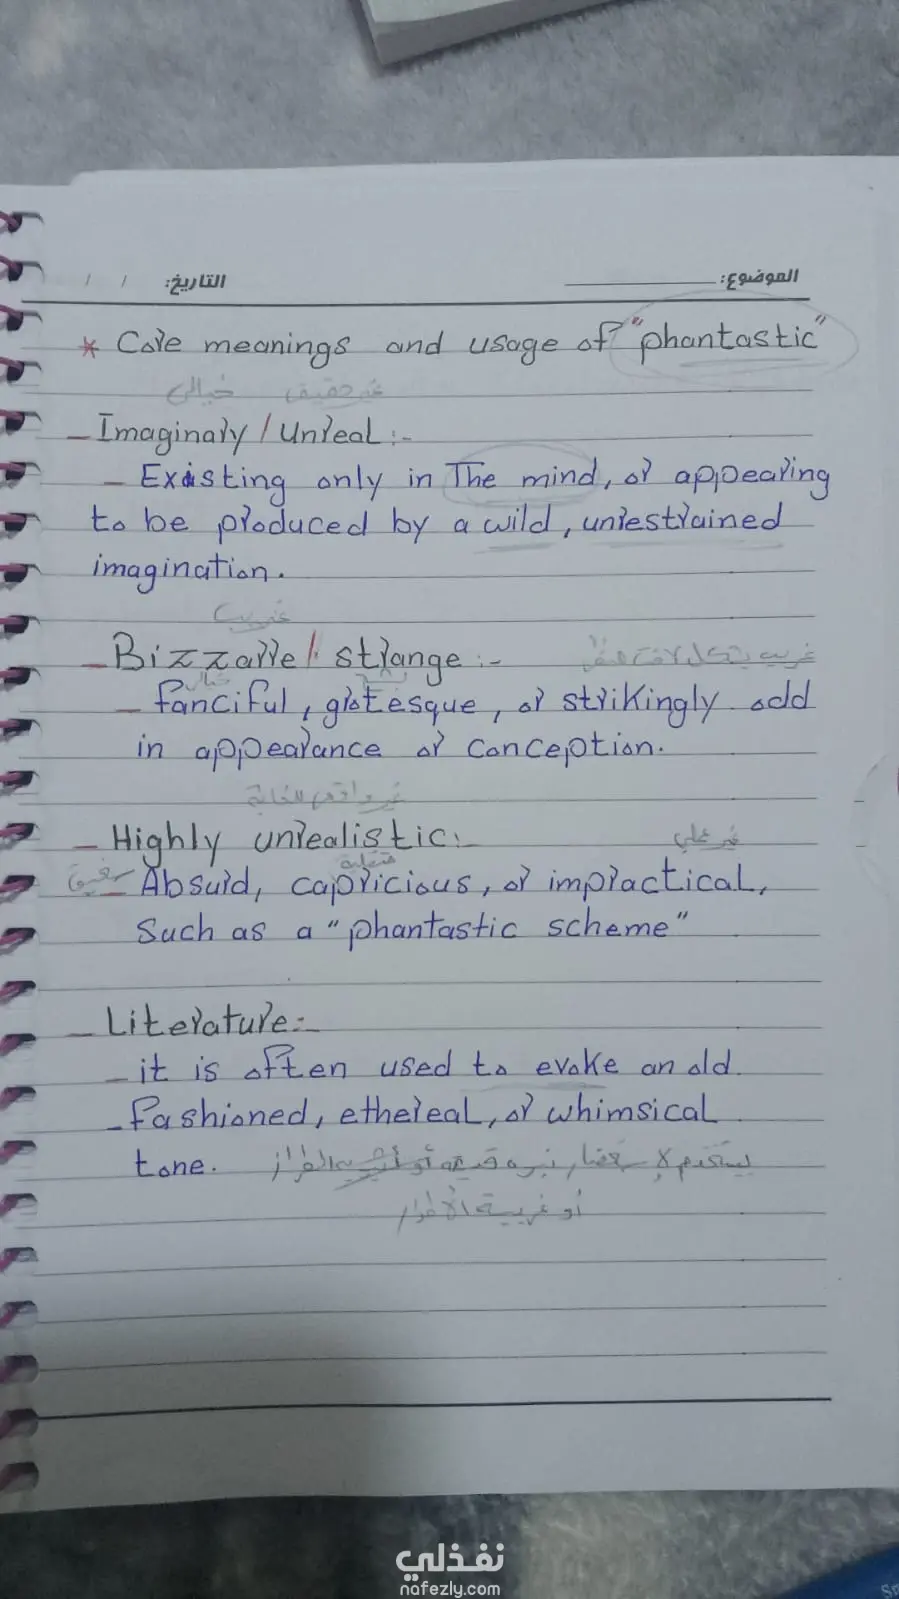 الموضوع: التاريخ: / /
* Core meanings and usage of "phantastic"
غير حقيقي خيالي
- Imaginary / Unreal :-
- Existing only in The mind, or appearing
to be produced by a wild, unrestrained
imagination.
غريب
- Bizzarre / strange :-
غريب بشكل لافت للنظر
خيالي
- fanciful, grotesque, or strikingly odd
in appearance or conception.
غير واقعي للغاية
- Highly unrealistic:-
غير عملي
متقلبة
- Absurd, capricious, or impractical,
Such as a "phantastic scheme"
- Literature:-
- it is often used to evoke an old
- fashioned, ethereal, or whimsical
tone. يستخدم لإستحضار نبره قديمة أو أثيريه الطراز
أو غريبة الأطوار
نفذلي
nafezly.com